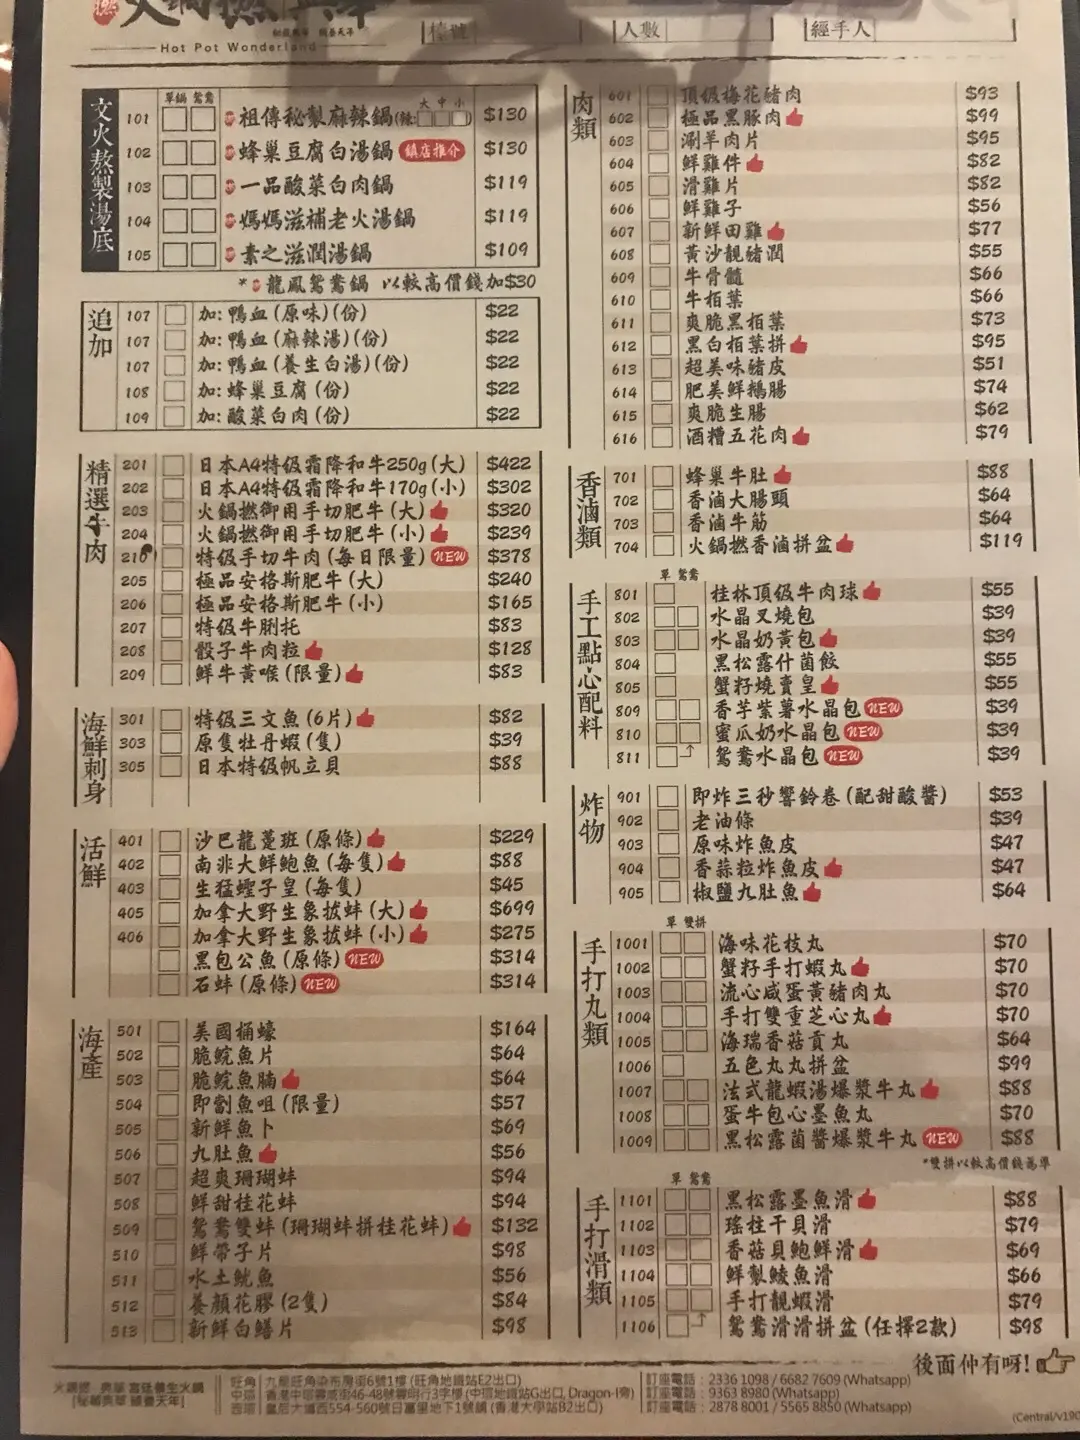 Hot Pot Wonderland
檯號
人數
經手人
文火熬製湯底
單鍋 鴛鴦
大 中 小
101 祖傳秘製麻辣鍋(辣: ) $130
102 蜂巢豆腐白湯鍋 鎮店推介 $130
103 一品酸菜白肉鍋 $119
104 媽媽滋補老火湯鍋 $119
105 素之滋潤湯鍋 $109
* 龍鳳鴛鴦鍋 以較高價錢加$30
追加
107 加: 鴨血(原味)(份) $22
107 加: 鴨血(麻辣湯)(份) $22
107 加: 鴨血(養生白湯)(份) $22
108 加: 蜂巢豆腐(份) $22
109 加: 酸菜白肉(份) $22
精選牛肉
201 日本A4特级霜降和牛250g(大) $422
202 日本A4特级霜降和牛170g(小) $302
203 火鍋撚御用手切肥牛(大) $320
204 火鍋撚御用手切肥牛(小) $239
210 特级手切牛肉(每日限量) NEW $378
205 極品安格斯肥牛(大) $240
206 極品安格斯肥牛(小) $165
207 特级牛脷托 $83
208 骰子牛肉粒 $128
209 鮮牛黃喉(限量) $83
海鮮刺身
301 特级三文魚(6片) $82
303 原隻牡丹蝦(隻) $39
305 日本特级帆立貝 $88
活鮮
401 沙巴龍躉班(原條) $229
402 南非大鮮鮑魚(每隻) $88
403 生猛蟶子皇(每隻) $45
405 加拿大野生象拔蚌(大) $699
406 加拿大野生象拔蚌(小) $275
黑包公魚(原條) NEW $314
石蚌(原條) NEW $314
海產
501 美國桶蠔 $164
502 脆鯇魚片 $64
503 脆鯇魚腩 $64
504 即劏魚咀(限量) $57
505 新鮮魚卜 $69
506 九肚魚 $56
507 超爽珊瑚蚌 $94
508 鮮甜桂花蚌 $94
509 鴛鴦雙蚌(珊瑚蚌拼桂花蚌) $132
510 鮮帶子片 $98
511 水土魷魚 $56
512 養顏花膠(2隻) $84
513 新鮮白鱔片 $98
肉類
601 頂级梅花豬肉 $93
602 極品黑豚肉 $99
603 涮羊肉片 $95
604 鮮雞件 $82
605 滑雞片 $82
606 鮮雞子 $56
607 新鮮田雞 $77
608 黃沙靚豬潤 $55
609 牛骨髓 $66
610 牛栢葉 $66
611 爽脆黑栢葉 $73
612 黑白栢葉拼 $95
613 超美味豬皮 $51
614 肥美鮮鵝腸 $74
615 爽脆生腸 $62
616 酒糟五花肉 $79
香滷類
701 蜂巢牛肚 $88
702 香滷大腸頭 $64
703 香滷牛筋 $64
704 火鍋撚香滷拼盆 $119
手工點心配料
單 鴛鴦
801 桂林頂级牛肉球 $55
802 水晶叉燒包 $39
803 水晶奶黃包 $39
804 黑松露什菌餃 $55
805 蟹籽燒賣皇 $55
809 香芋紫薯水晶包 NEW $39
810 蜜瓜奶水晶包 NEW $39
811 鴛鴦水晶包 NEW $39
炸物
901 即炸三秒響鈴卷(配甜酸醬) $53
902 老油條 $39
903 原味炸魚皮 $47
904 香蒜粒炸魚皮 $47
905 椒鹽九肚魚 $64
手打丸類
單 雙拼
1001 海味花枝丸 $70
1002 蟹籽手打蝦丸 $70
1003 流心咸蛋黃豬肉丸 $70
1004 手打雙重芝心丸 $70
1005 海瑞香菇貢丸 $64
1006 五色丸丸拼盆 $99
1007 法式龍蝦湯爆漿牛丸 $88
1008 蛋牛包心墨魚丸 $70
1009 黑松露菌醬爆漿牛丸 NEW $88
*雙拼以較高價錢為準
手打滑類
單 鴛鴦
1101 黑松露墨魚滑 $88
1102 瑤柱干貝滑 $79
1103 香菇貝鮑鮮滑 $69
1104 鮮製鯪魚滑 $66
1105 手打靚蝦滑 $79
1106 鴛鴦滑滑拼盆(任擇2款) $98
後面仲有呀!
旺角 九龍旺角染布房街6號1樓(旺角地鐵站E2出口) 訂座電話: 2336 1098 / 6682 7609 (Whatsapp)
中環 香港中環威靈頓街46-48號威明行3字樓 (中環地鐵站G出口, Dragon-i旁) 訂座電話: 9363 8980 (Whatsapp)
西環 皇后大道西554-560號日富里地下1號舖 (香港大學站B2出口) 訂座電話: 2878 8001 / 5565 8850 (Whatsapp)